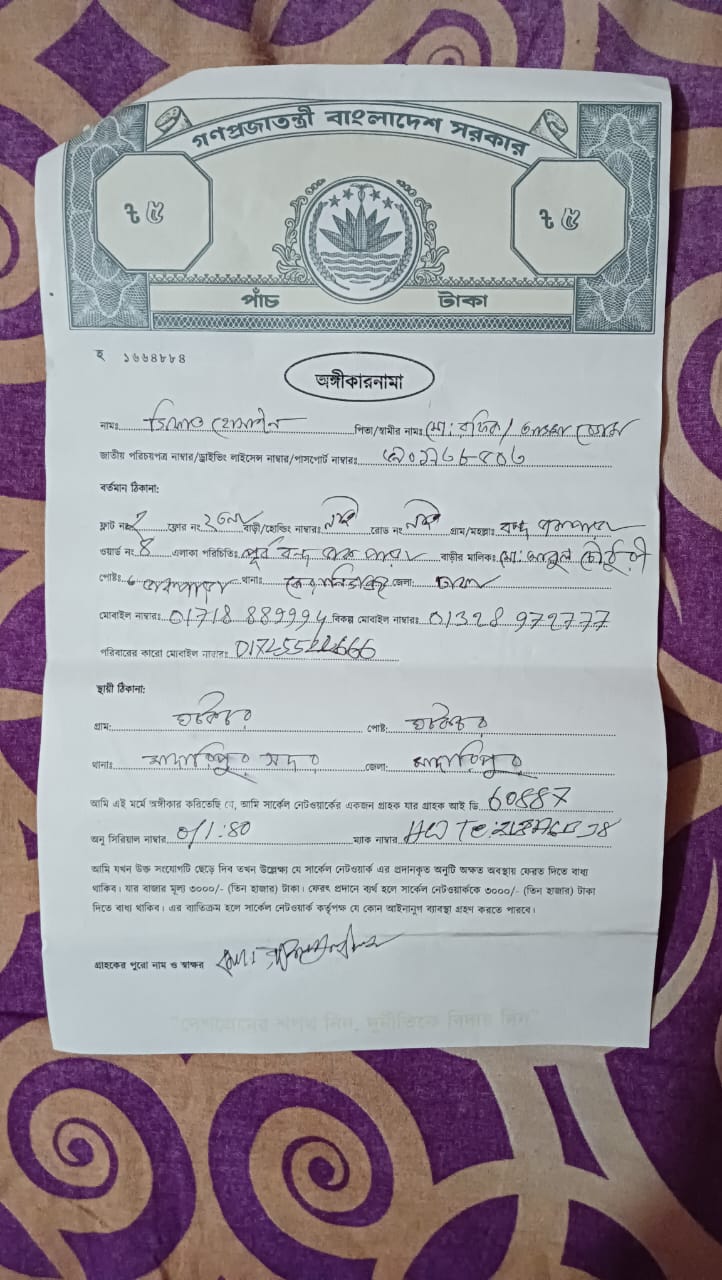 গণপ্রজাতন্ত্রী বাংলাদেশ সরকার
৳ ৫ ৳ ৫
পাঁচ টাকা
হ ১৬৬৪৮৮৪
অঙ্গীকারনামা
নামঃ হোসাইন পিতা/স্বামীর নামঃ মো: রফিক/
জাতীয় পরিচয়পত্র নাম্বার/ড্রাইভিং লাইসেন্স নাম্বার/পাসপোর্ট নাম্বারঃ
বর্তমান ঠিকানা:
ফ্লাট নং ফ্লোর নং বাড়ী/হোল্ডিং নাম্বারঃ নাই রোড নং নাই গ্রাম/মহল্লাঃ বন্দ
ওয়ার্ড নং 8 এলাকা পরিচিতিঃ পূর্ব বন্দ ডাক পাড়া বাড়ীর মালিকঃ মো: আবুল চৌধুরী
পোষ্টঃ থানাঃ কেরানিগঞ্জ জেলা: ঢাকা
মোবাইল নাম্বারঃ 01718 889994 বিকল্প মোবাইল নাম্বারঃ 01328 972777
পরিবারের কারো মোবাইল নাম্বারঃ
স্থায়ী ঠিকানা:
গ্রাম: পোষ্ট:
থানাঃ মাদারিপুর সদর জেলা: মাদারিপুর
আমি এই মর্মে অঙ্গীকার করিতেছি যে, আমি সার্কেল নেটওয়ার্কের একজন গ্রাহক যার গ্রাহক আই ডি 60887
অনু সিরিয়াল নাম্বার 0/1:80 ম্যাক নাম্বার
আমি যখন উক্ত সংযোগটি ছেড়ে দিব তখন উল্লেক্ষ্য যে সার্কেল নেটওয়ার্ক এর প্রদানকৃত অনুটি অক্ষত অবস্থায় ফেরত দিতে বাধ্য
থাকিব। যার বাজার মূল্য ৩০০০/- (তিন হাজার) টাকা। ফেরৎ প্রদানে ব্যর্থ হলে সার্কেল নেটওয়ার্ককে ৩০০০/- (তিন হাজার) টাকা
দিতে বাধ্য থাকিব। এর ব্যতিক্রম হলে সার্কেল নেটওয়ার্ক কর্তৃপক্ষ যে কোন আইনানুগ ব্যাবস্থা গ্রহণ করতে পারবে।
গ্রাহকের পুরো নাম ও স্বাক্ষর
"দেশপ্রেমের শপথ নিন, দুর্নীতিকে বিদায় দিন"